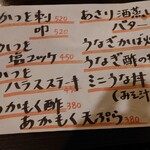 かつを刺 520
叩 520
かつを
塩ユッケ 450
かつを
ハラスステーキ
あかもく酢 380
あかもく天ぷら 380
あさり酒蒸し
バター
うなぎかば焼
うなぎ酢の物
ミニうな丼